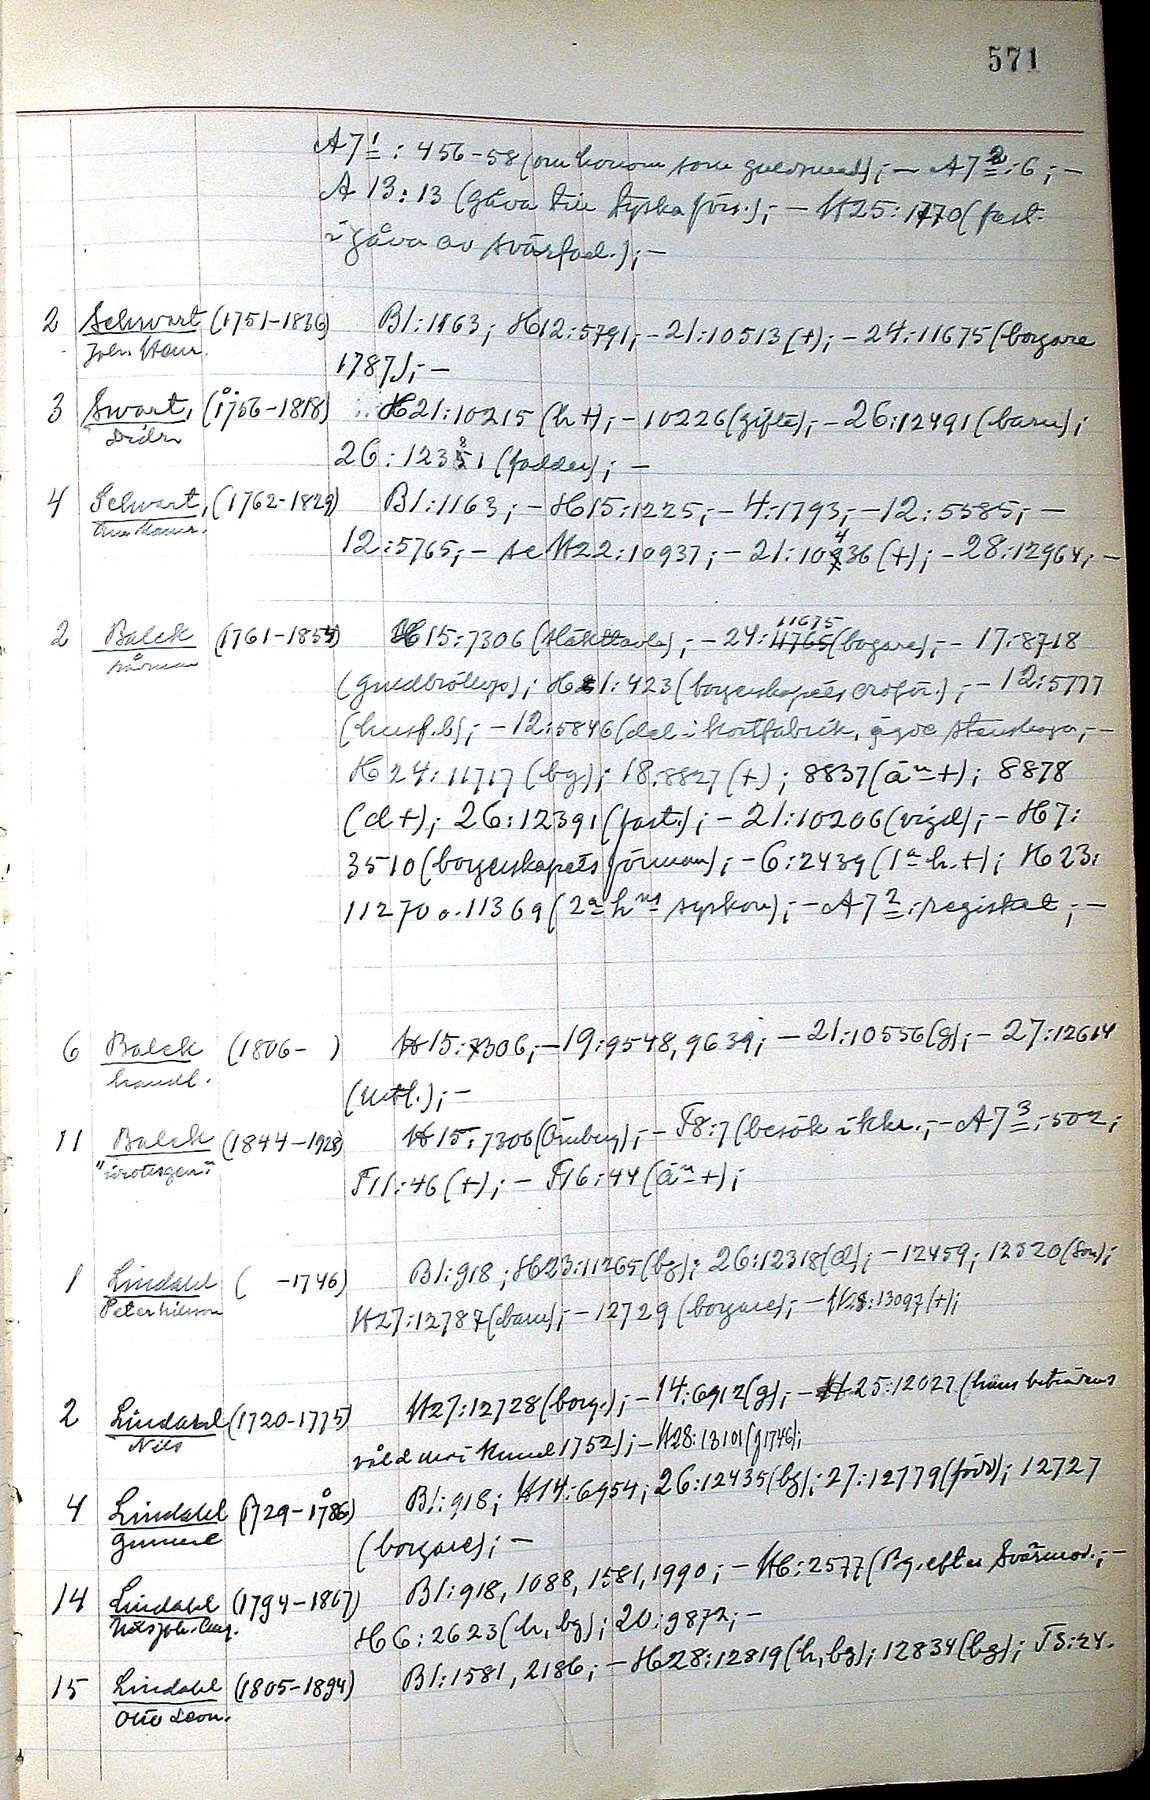 571
A 7 1: 456-58 (om honom som guldsmed); - A 7 2: 6; -
A 13: 13 (gåva till Tyska förs.); - H25: 1770 (fast.
i gåva av svärfad.); -
2 Schwart (1751-1836) B1: 1163; H12: 5791; - 21: 10513 (+); - 24: 11675 (borgare
Joh. Hour.
1787); -
3 Swart, (1756-1818) H21: 10215 (h +); - 10226 (gifte); - 26: 12491 (barn);
Didr.
26: 12351 (fadder); -
4 Schwart, (1762-1829) B1: 1163; - H15: 1225; - 4: 1793; - 12: 5585; -
12: 5765; - se H22: 10937; - 21: 10436 (+); - 28: 12964; -
11675
2 Balck (1761-1855) H15: 7306 (släkttavla); - 24: 11765 (borgare); - 17: 8718
rådman
(guldbröllop); H21: 423 (borgerskapets ordför.); - 12: 5777
(husf.b); - 12: 5846 (del i kortfabrik, ägde stenhuga; -
H24: 11717 (bg); 18: 8827 (+); 8837 (än +); 8878
(d +); 26: 12391 (fast.); - 21: 10206 (vigd); - H7:
3510 (borgerskapets förman); - 6: 2439 (1a h. +); H23:
11270 o. 11369 (2a hns syskon); - A 7 2: registret; -
6 Balck (1806- ) H15: 7306; - 19: 9548, 9639; - 21: 10556 (g); - 27: 12614
handl.
(utfl.); -
11 Balck (1844-1928) H15: 7306 (Örneberg); - F8: 7 (besök i kkr.; - A 7 3: 502;
"idrottsgen."
F11: 46 (+); - F16: 44 (än +);
1 Lindahl ( -1746) B1: 918; H23: 11265 (bg); 26: 12318 (d); - 12459; 12520 (son);
Peter Nilsson
H27: 12787 (barn); - 12729 (borgare); - H28: 13097 (+);
2 Lindahl (1720-1775) H27: 12728 (borg.); - 14: 6912 (g); - H25: 12027 (hans beträdens
Nils
våld mot Kund 1752); - H28: 13101 (g 1746);
4 Lindahl (1729-1786) B1: 918; H14: 6954; 26: 12435 (bg); 27: 12779 (förd); 12727
Gummel
(borgare); -
14 Lindahl (1794-1867) B1: 918, 1088, 1581, 1990; - H6: 2577 (Bg. efter Svärmod.; -
Nils Joh. Aug.
H6: 2623 (h, bg); 20: 9872; -
15 Lindahl (1805-1894) B1: 1581, 2186; - H28: 12819 (h, bg); 12834 (bg); F5: 24.
Otto Leon.